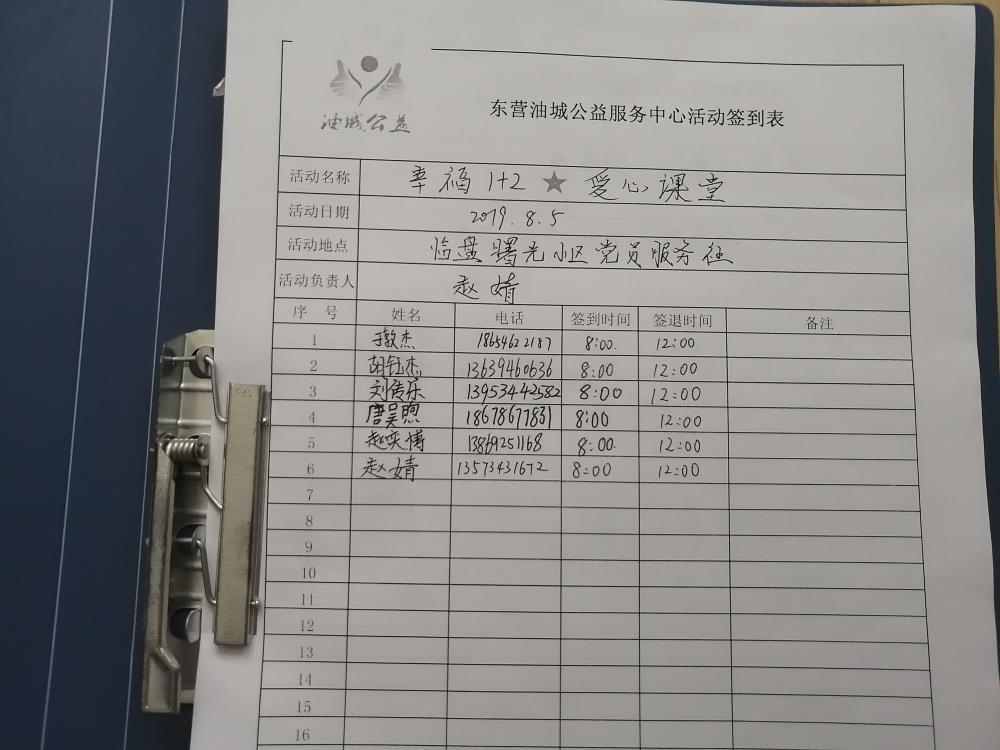 油城公益
东营油城公益服务中心活动签到表
活动名称 幸福1+2 ★ 爱心课堂
活动日期 2019.8.5
活动地点 临盘曙光小区党员服务
活动负责人 赵婧
序号 姓名 电话 签到时间 签退时间 备注
1 18654622187 8:00. 12:00
2 胡钰杰 13639460636 8:00 12:00
3 刘传乐 13953442582 8:00 12:00
4 唐昊煦 18678677831 8:00 12:00
5 赵奕博 13869251168 8:00. 12:00
6 赵婧 13573431672 8:00 12:00
7
8
9
10
11
12
13
14
15
16